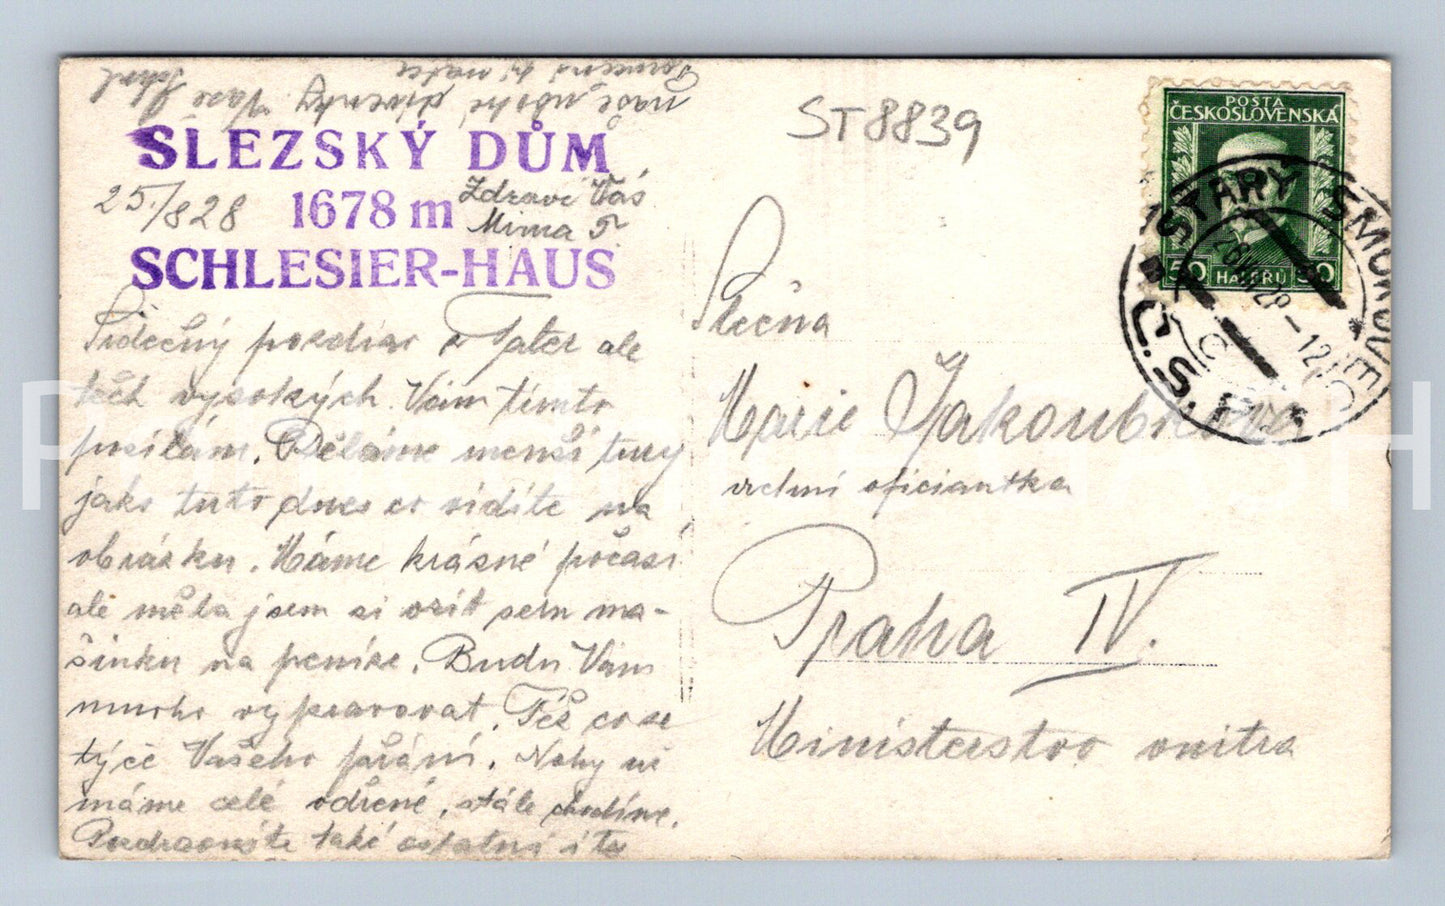 SLEZSKÝ DŮM
25/8 28
1678 m
Zdraví Vás
Mima
SCHLESIER-HAUS
Srdečný pozdrav z Tater ale
těch vysokých Vám tímto
posílám. Děláme menší tury
jako tuto dnes co vidíte na
obrázku. Máme krásné počasí
ale měla jsem si vzít sem ma-
šinku na peníze. Budu Vám
mnoho vypravovat. Též co se
týče Vašeho přání. Nohy už
máme celé odřené, stále chodíme.
Pozdravujte také ostatní i tu
naše
ST8839
POSTA
ČESKOSLOVENSKÁ
50 HALÉŘŮ 50
STARÝ SMOKOVEC
Č.S.P.
Slečna
Marie Jakoubkova
vrchní oficiantka
Praha IV.
Ministerstvo vnitra